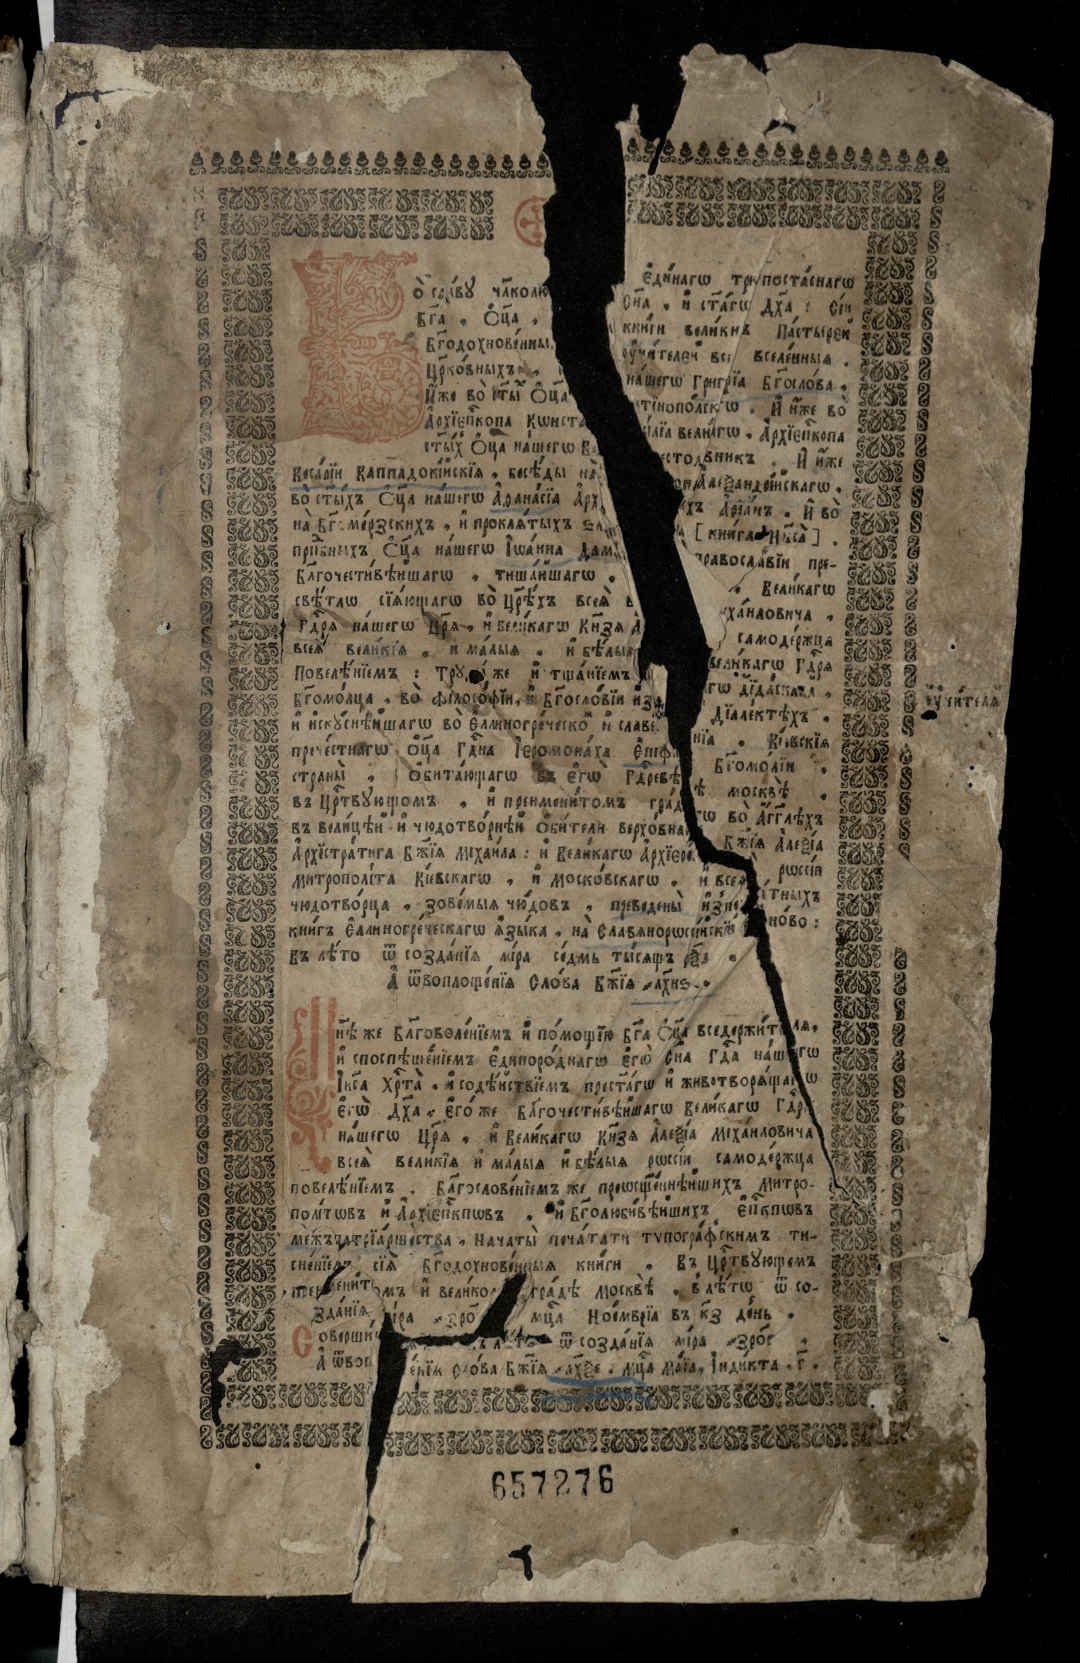 Во сла́ву чл҃колю Еди́нагѡ трѵпоста́снагѡ
Бг҃а , Ѻ҆ц҃а , Сн҃а , и҆ ст҃а́гѡ Дх҃а : Сїѧ̀
Бг҃одохнове́нны кни́ги вели́кихъ Па́стырей
Цр҃ко́вныхъ , и҆ ᲂу҆чи́телей всеѧ̀ вселе́нныѧ .
И҆́же во ст҃ы́ Ѻ҆ц҃а на́шегѡ Григѡ́рїа Бг҃осло́ва ,
А҆рхїеп҃копа Кѡнста тїнопо́лскѡ . И҆ и҆́же во
ст҃ы́хъ Ѻ҆ц҃а на́шегѡ Ва сі́лїа вели́кагѡ , А҆рхїеп҃копа
Кесарі́и Каппадокі́йскїѧ , бесѣ́ды на̀ естодне́вникъ . И҆ и҆́же
во ст҃ы́хъ Ѻ҆ц҃а на́шегѡ А҆ѳана́сїа А҆рх А҆леѯандрі́йскагѡ ,
на Бг҃оме́рзскихъ , и҆ проклѧ́тыхъ А҆рїа́нъ . И҆ во
прпⷣбныхъ Ѻ҆ц҃а на́шегѡ І҆ѡа́нна Дам [ кни́га Нб҃са̀ ] .
Бл҃гочести́вѣйшагѡ , тиша́йшагѡ , правосла́вїи пре-
свѣ́тлѡ сїѧ́ющагѡ во Цр҃ѣ́хъ всеѧ̀ в , Вели́кагѡ
Гдⷭ҇рѧ на́шегѡ Цр҃ѧ̀ , и҆ вели́кагѡ Кн҃зѧ А҆ ха́иловича ,
всеѧ̀ вели́кїѧ . и҆ ма́лыѧ . и҆ бѣ́лыѧ самоде́ржца
Повелѣ́нїемъ : Трудо́мъ же и҆ тща́нїемъ вели́кагѡ Гдⷭ҇рѧ
Бг҃омо́лца , во фїлосо́фїи, и҆ Бг҃осло́вїи и҆зѧ гѡ дїда́скала ,
и҆ и҆скꙋ́снѣйшагѡ во є҆ллиногре́ческо и҆ славе дїале́ктѣхъ ,
пречⷭ҇тна́гѡ ѻ҆ц҃а Гдⷭ҇на І҆еромона́ха Є҆піфа нїа , Кі́евскїѧ
страны̀ , Ѻ҆бита́ющагѡ въ є҆гѡ̀ Гдⷭ҇ревѣ Бг҃омо́лїи ,
въ Црⷭ҇твꙋющомъ , и҆ преимени́томъ гра́д ѣ москвѣ̀ ,
въ вели́цѣй и҆ чюдотво́рнѣй ѻ҆би́тели верхо́вна гѡ во А҆́гг҃лѣхъ
А҆рхїстрати́га Бж҃їѧ Міхаи́ла : и҆ Вели́кагѡ А҆рхїере Бж҃їѧ А҆леѯі́а
Митрополі́та Кі́евскагѡ , и҆ Моско́вскагѡ , и҆ всеѧ̀ рѡссі́и
чюдотво́рца , зово́мыѧ чю́довъ , преведены̀ и҆зно тныхъ
кни́гъ є҆ллиногре́ческагѡ ꙗ҆зы́ка , на Славѧнорѡссі́йскїй но́во :
въ лѣ́то ѿ созда́нїѧ мі́ра се́дмь ты́сѧщъ рѯд .
А҆ ѿ воплоще́нїѧ Сло́ва Бж҃їѧ ҂ахнѕ .
Нн҃ѣ же Бл҃говоле́нїемъ и҆ по́мощїю Бг҃а Ѻ҆ц҃а вседержи́телѧ,
и҆ споспѣше́нїемъ є҆диноро́днагѡ є҆гѡ̀ Сн҃а Гдⷭ҇а на́шегѡ
І҆и҃са Хрⷭ҇та̀ . и҆ содѣ́йствїемъ прест҃а́гѡ и҆ животворѧ́щагѡ
є҆гѡ̀ Дх҃а . Є҆гѡ́ же Бл҃гочести́вѣйшагѡ Вели́кагѡ Гдⷭ҇рѧ
на́шегѡ Цр҃ѧ̀ . и҆ Вели́кагѡ Кн҃зѧ А҆леѯі́а Міха́иловича
всеѧ̀ вели́кїѧ и҆ ма́лыѧ и҆ бѣ́лыѧ рѡссі́и самоде́ржца
повелѣ́нїемъ . Бл҃гослове́нїемъ же преѡсщ҃е́ннѣйшихъ Митро-
полі́тѡвъ и҆ А҆рхїеп҃кпѡвъ . и҆ Бг҃олюби́вѣйшихъ Є҆п҃кпѡвъ
междꙋпатрїа́ршества , нача́ты печа́тати тѵпогра́фскимъ ти-
сне́нїемъ сїѧ̀ Бг҃одохнове́нныѧ кни́ги . Въ Црⷭ҇твꙋющемъ
преимени́томъ и҆ вели́комъ гра́дѣ Москвѣ̀ . в лѣ́тѡ ѿ со-
зда́нїѧ мі́ра ҂зро мцⷭ҇а Ное́мврїа въ кз де́нь .
Соверши ѿ созда́нїѧ мі́ра ҂зрог .
А҆ ѿ вопл е́нїѧ сло́ва Бж҃їѧ ҂ахѯе . мцⷭ҇а Ма́їа , І҆нді́кта г .
ᲂу҆чи́телѧ
657276